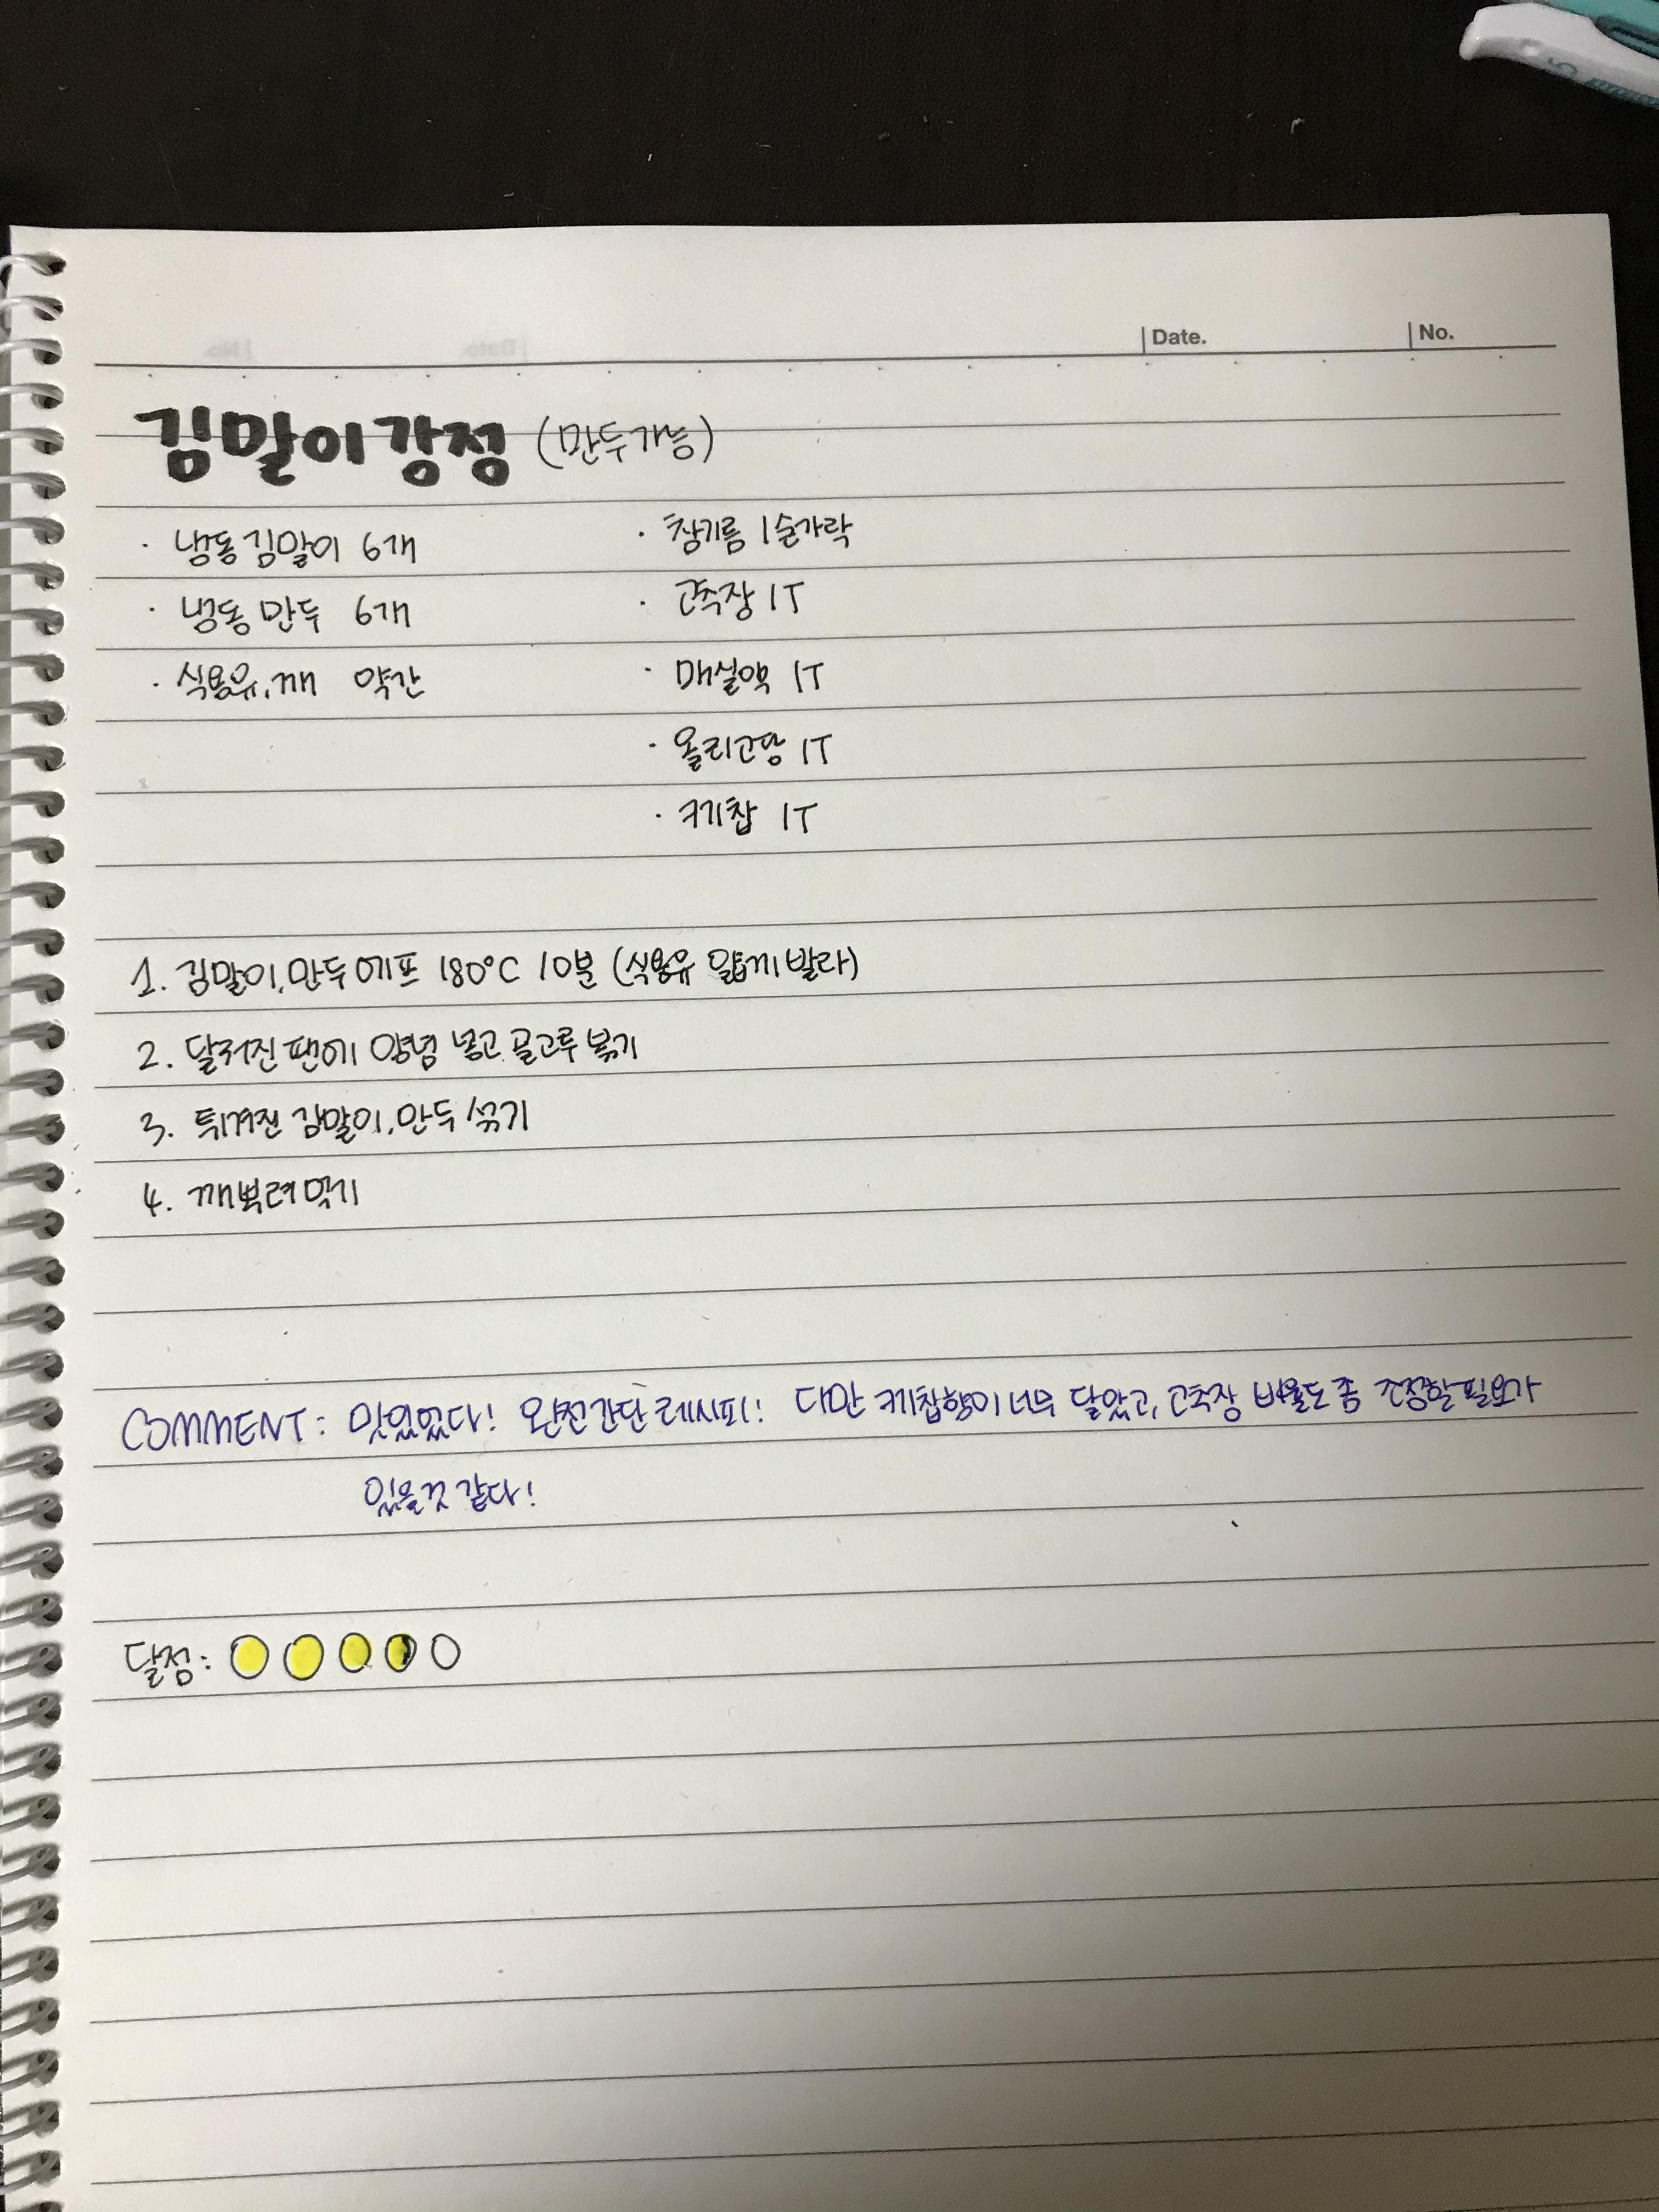 Date. No.
김말이강정 (만두가능)
· 냉동김말이 6개
· 냉동만두 6개
· 식용유, 깨 약간
· 참기름 1숟가락
· 고추장 1T
· 매실액 1T
· 올리고당 1T
· 케찹 1T
1. 김말이, 만두 에프 180°C 10분 (식용유 얇게 발라)
2. 달궈진 팬에 양념 넣고 골고루 볶기
3. 튀겨진 김말이, 만두 섞기
4. 깨뿌려먹기
COMMENT: 맛있었다! 완전간단레시피! 다만 케찹향이 너무 달았고, 고추장 비율도 좀 조정할필요가
있을것 같다!
달점: